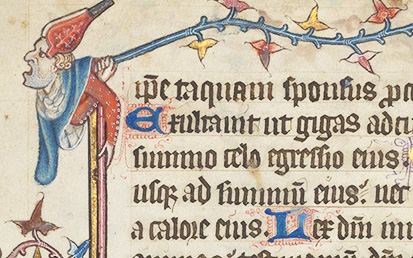 ip̄e taquam sponsus pro
Exultauit ut gigas ad cu
summo celo egressio eius
usqꝫ ad summū eius: nec
a calore eius. Lex dn̄i im